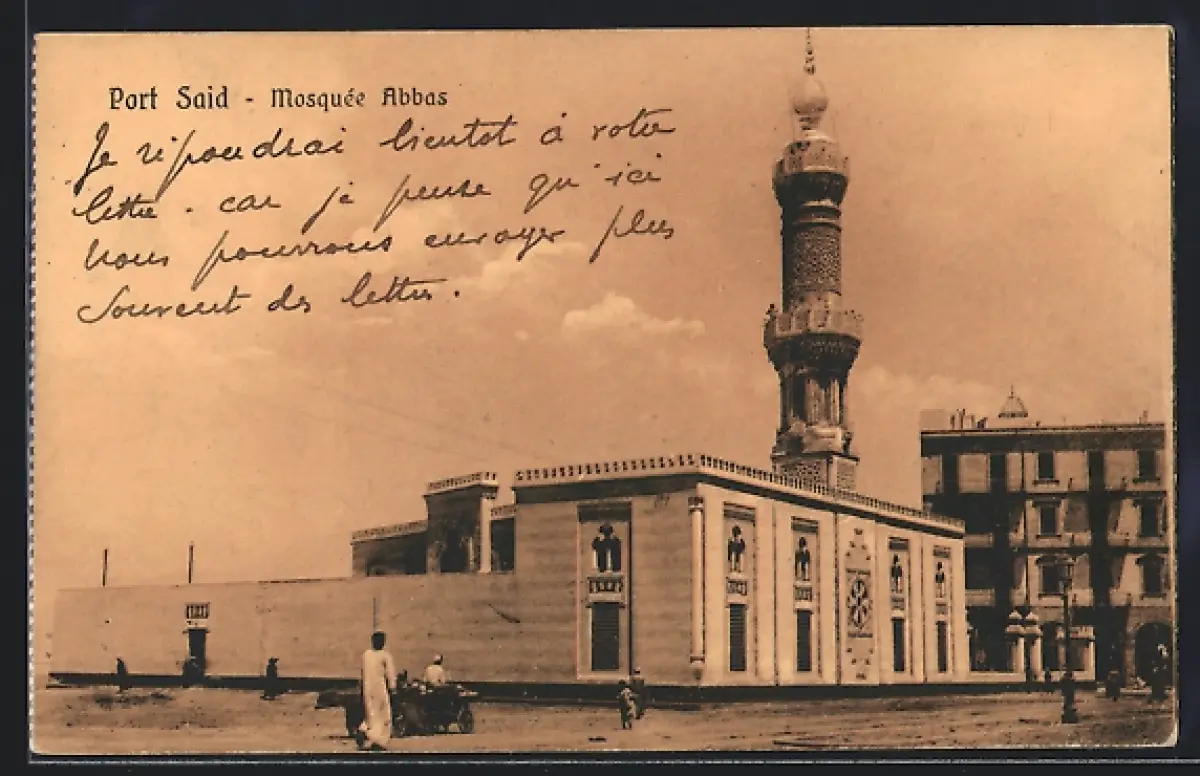 Port Said - Mosquée Abbas
Je répondrai bientot à votre
lettre. car je pense qu'ici
nous pourrons envoyer plus
souvent des lettres.